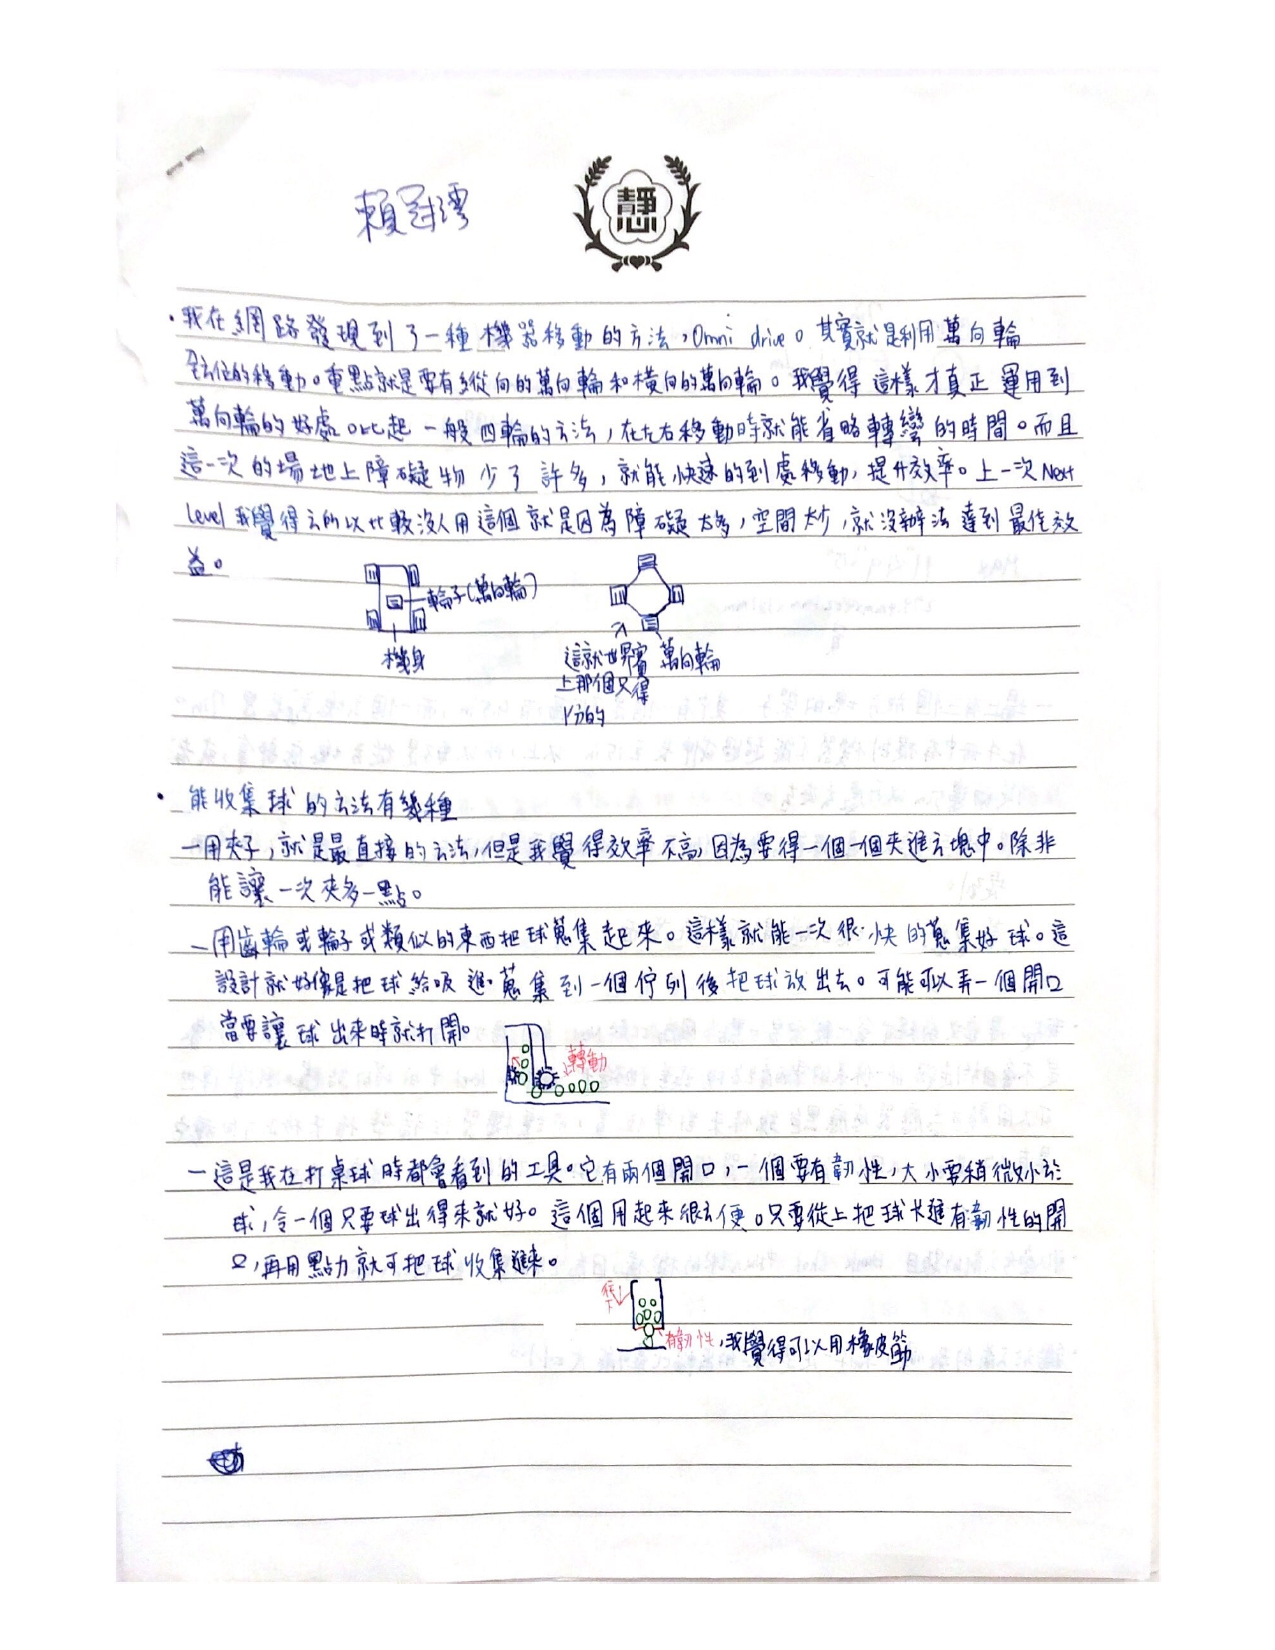 賴冠澐
靜心
・我在網路發現到了一種機器移動的方法,Omni drive。其實就是利用萬向輪
全方位的移動。重點就是要有縱向的萬向輪和橫向的萬向輪。我覺得這樣才真正運用到
萬向輪的好處。比起一般四輪的方法,在左右移動時就能省略轉彎的時間。而且
這一次的場地上障礙物少了許多,就能快速的到處移動,提升效率。上一次Next
Level我覺得之所以比較沒人用這個就是因為障礙太多,空間太少,就沒辦法達到最佳效
益。
輪子(萬向輪)
機身
這就世界賽
上那個只得
1分的
萬向輪
・能收集球的方法有幾種
-用夾子,就是最直接的方法,但是我覺得效率不高,因為要得一個一個夾進方塊中。除非
能讓一次夾多一點。
-用齒輪或輪子或類似的東西把球蒐集起來。這樣就能一次很快的蒐集好球。這
設計就好像是把球給吸進.蒐集到一個佇列後把球放出去。可能可以弄一個開口
當要讓球出來時就打開。
轉動
-這是我在打桌球時都會看到的工具。它有兩個開口,一個要有韌性,大小要稍微小於
球,令一個只要球出得來就好。這個用起來很方便。只要從上把球卡進有韌性的開
口,再用點力就可把球收集進來。
往下
有韌性,我覺得可以用橡皮筋